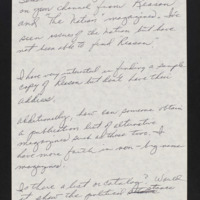 on your channel from Reason
and The Nation magazines. I've
seen issues of the nation but have
not been able to find Reason.
I have very interested in finding a sample
copy of Reason but don't have their
address.
Additionally, how can someone obtain
a publication list of alternative
magazines such as these two. I
have more faith in non-big name
magazines.
Is there a list or catalog? Would
it show the political